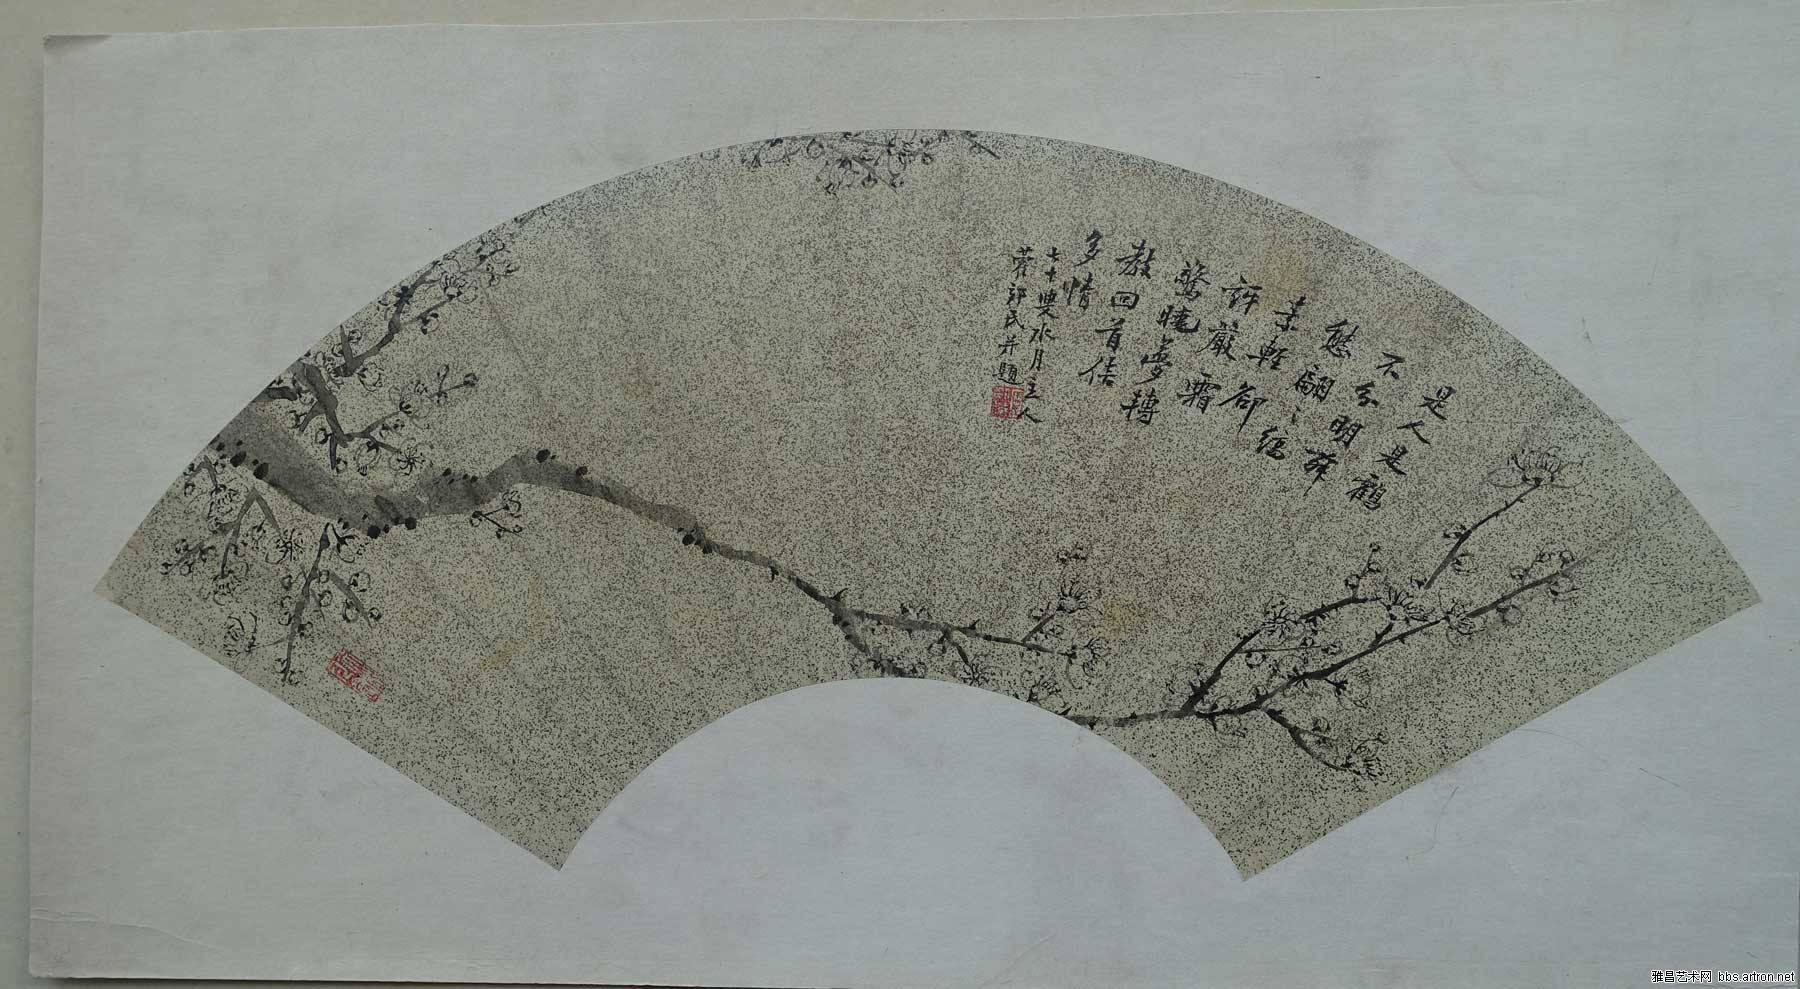 是人是鶴
不分明舞
態翩ミ縞
素輕卻
許嚴霜
驚曉夢轉
教回首倍
多情
七十叟水月主人
民并題
雅昌艺术网 bbs.artron.net